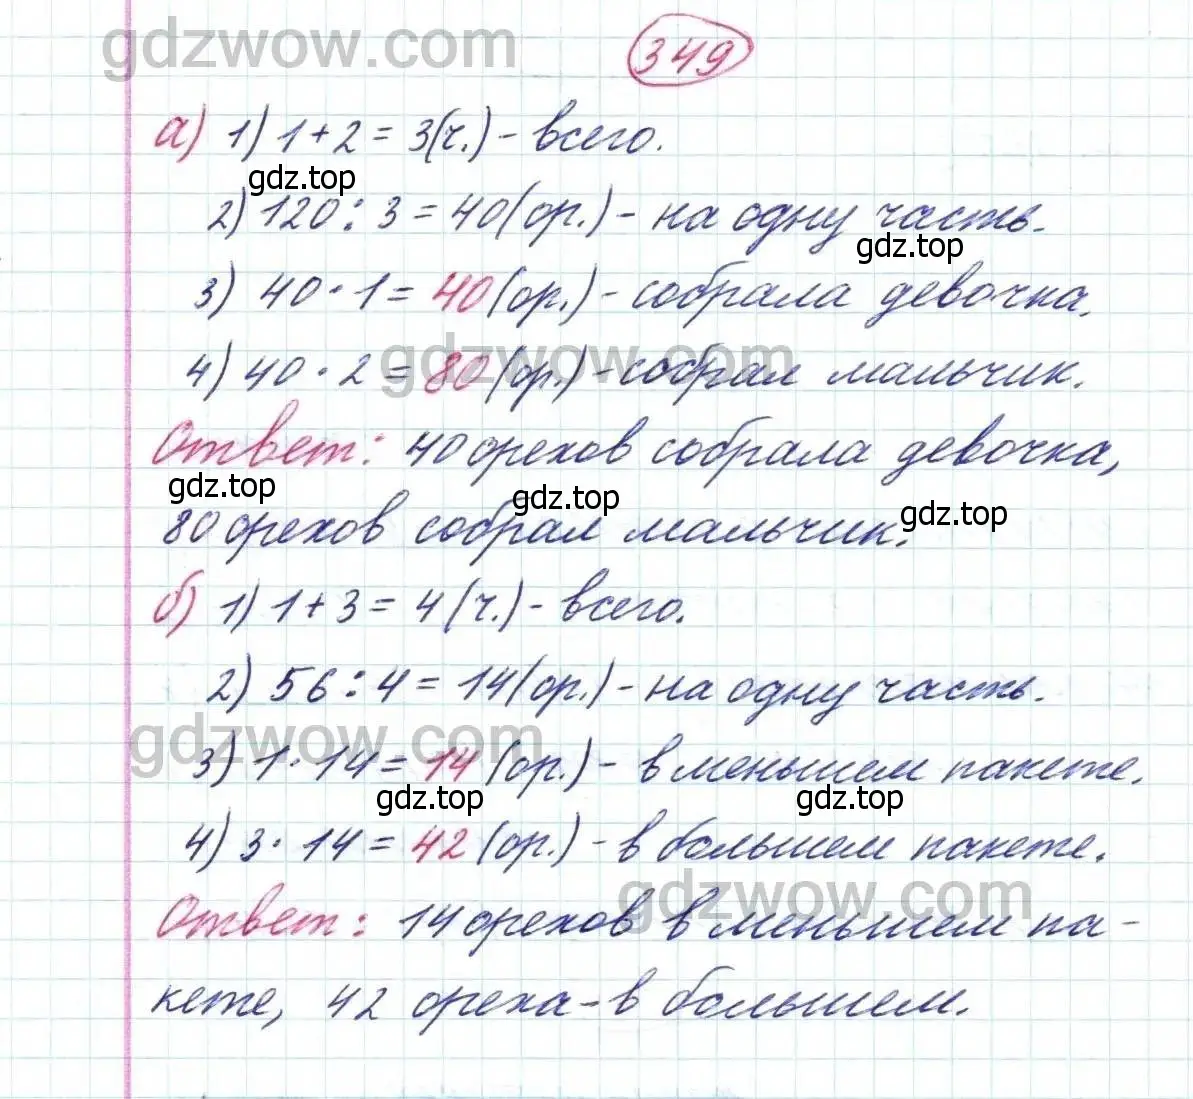 gdzwow.com
349
а) 1) 1 + 2 = 3 (ч.) - всего.
gdz.top
2) 120 : 3 = 40 (ор.) - на одну часть.
gdz.top
3) 40 · 1 = 40 (ор.) - собрала девочка.
gdzwow.com
4) 40 · 2 = 80 (ор.) - собрал мальчик.
Ответ: 40 орехов собрала девочка,
gdz.top gdz.top gdz.top
80 орехов собрал мальчик.
б) 1) 1 + 3 = 4 (ч.) - всего.
2) 56 : 4 = 14 (ор.) - на одну часть.
gdzwow.com
3) 1 · 14 = 14 (ор.) - в меньшем пакете.
gdz.top gdz.top
4) 3 · 14 = 42 (ор.) - в большем пакете.
gdzwow.com
Ответ: 14 орехов в меньшем па-
кете, 42 ореха - в большем.